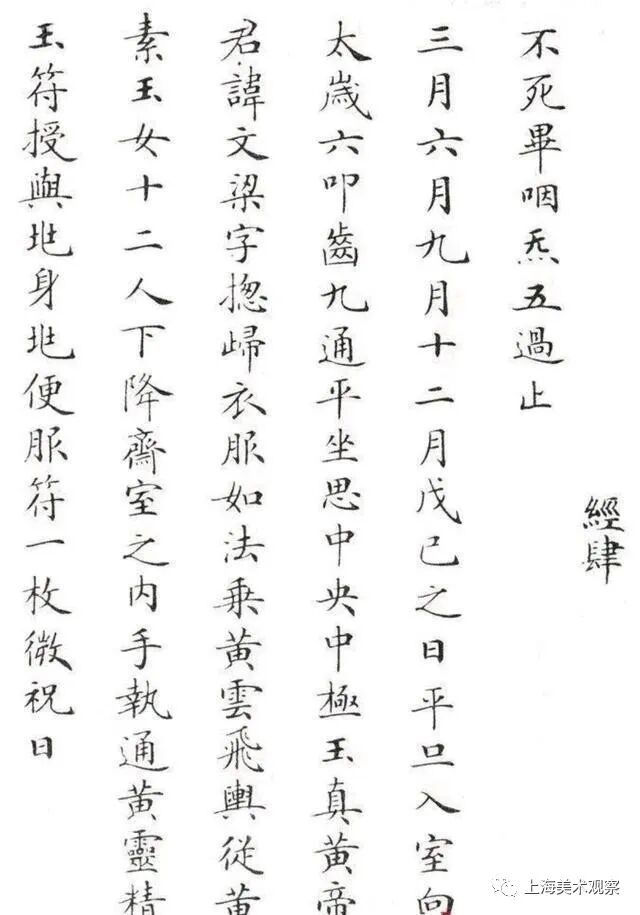 經肆
不死畢咽炁五過止
三月六月九月十二月戊己之日平旦入室向
太歲六叩齒九通平坐思中央中極玉真黄帝
君諱文梁字揔歸衣服如法乗黄雲飛輿從黄
素玉女十二人下降齋室之内手執通黄靈精
玉符授與地身地便服符一枚微祝曰
上海美术观察